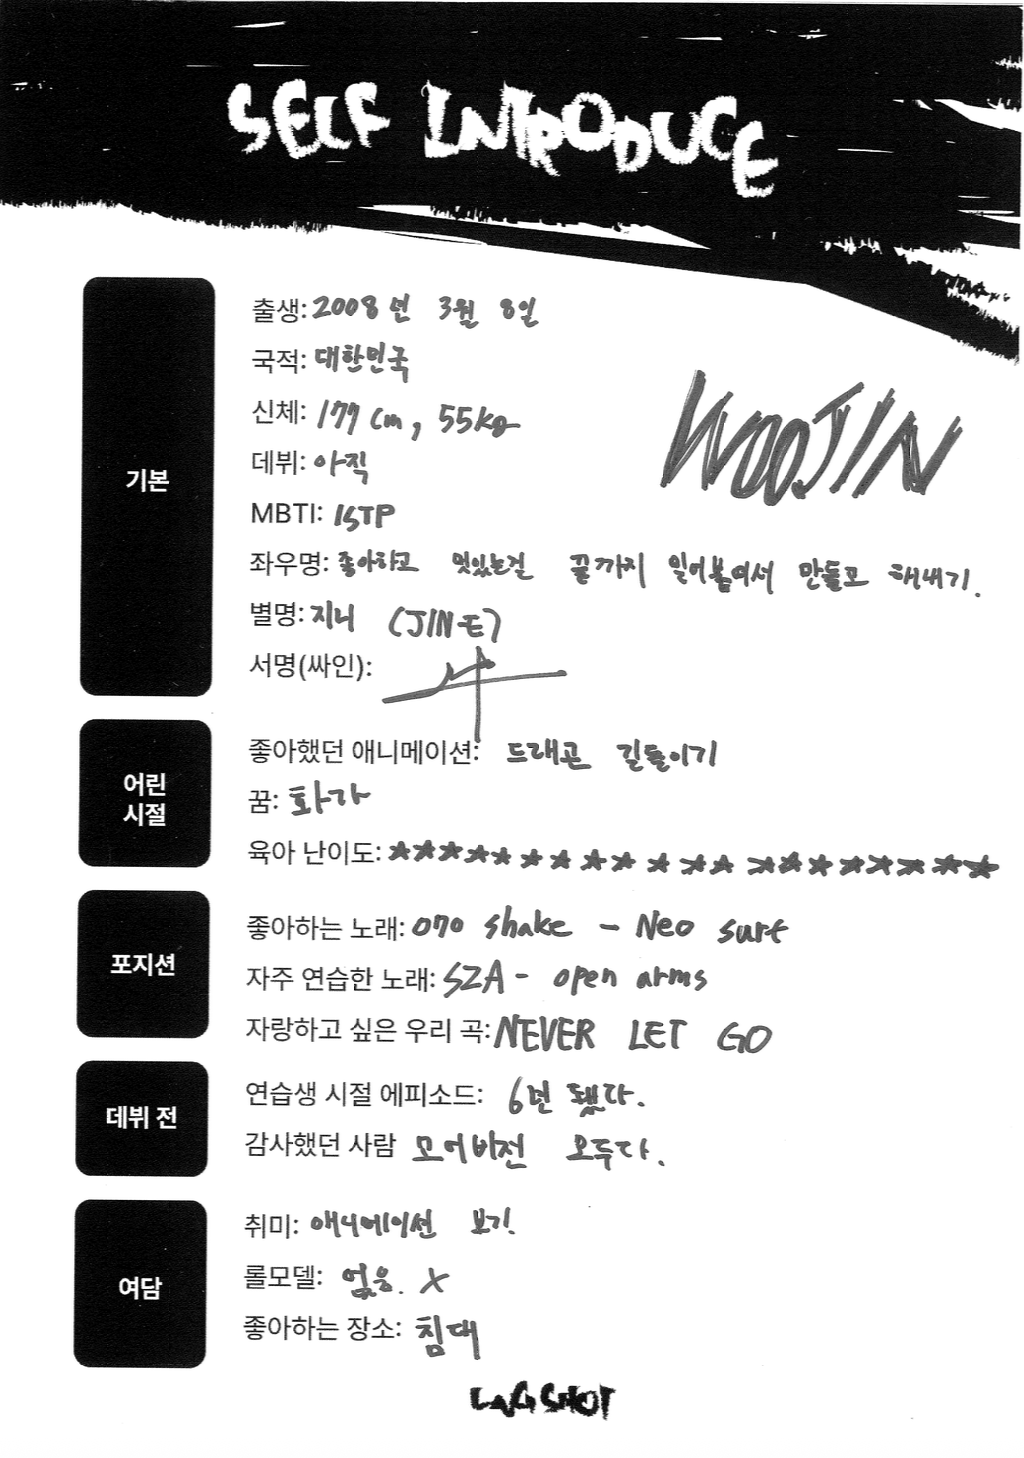 SELF INTRODUCE
기본
출생: 2008년 3월 8일
국적: 대한민국
신체: 177cm, 55kg
데뷔: 아직
WOOJIN
MBTI: ISTP
좌우명: 좋아하고 멋있는걸 끝까지 밀어붙여서 만들고 해내기.
별명: 지니 (JIN-E)
서명(싸인):
어린
시절
좋아했던 애니메이션: 드래곤 길들이기
꿈: 화가
육아 난이도: ★★★★★★★★★★★★★★★★★★★★
포지션
좋아하는 노래: 070 shake - Neo surf
자주 연습한 노래: SZA - open arms
자랑하고 싶은 우리 곡: NEVER LET GO
데뷔 전
연습생 시절 에피소드: 6년 됐다.
감사했던 사람 모어비전 모두다.
여담
취미: 애니메이션 보기.
롤모델: 없음. X
좋아하는 장소: 침대
LNGSHOT